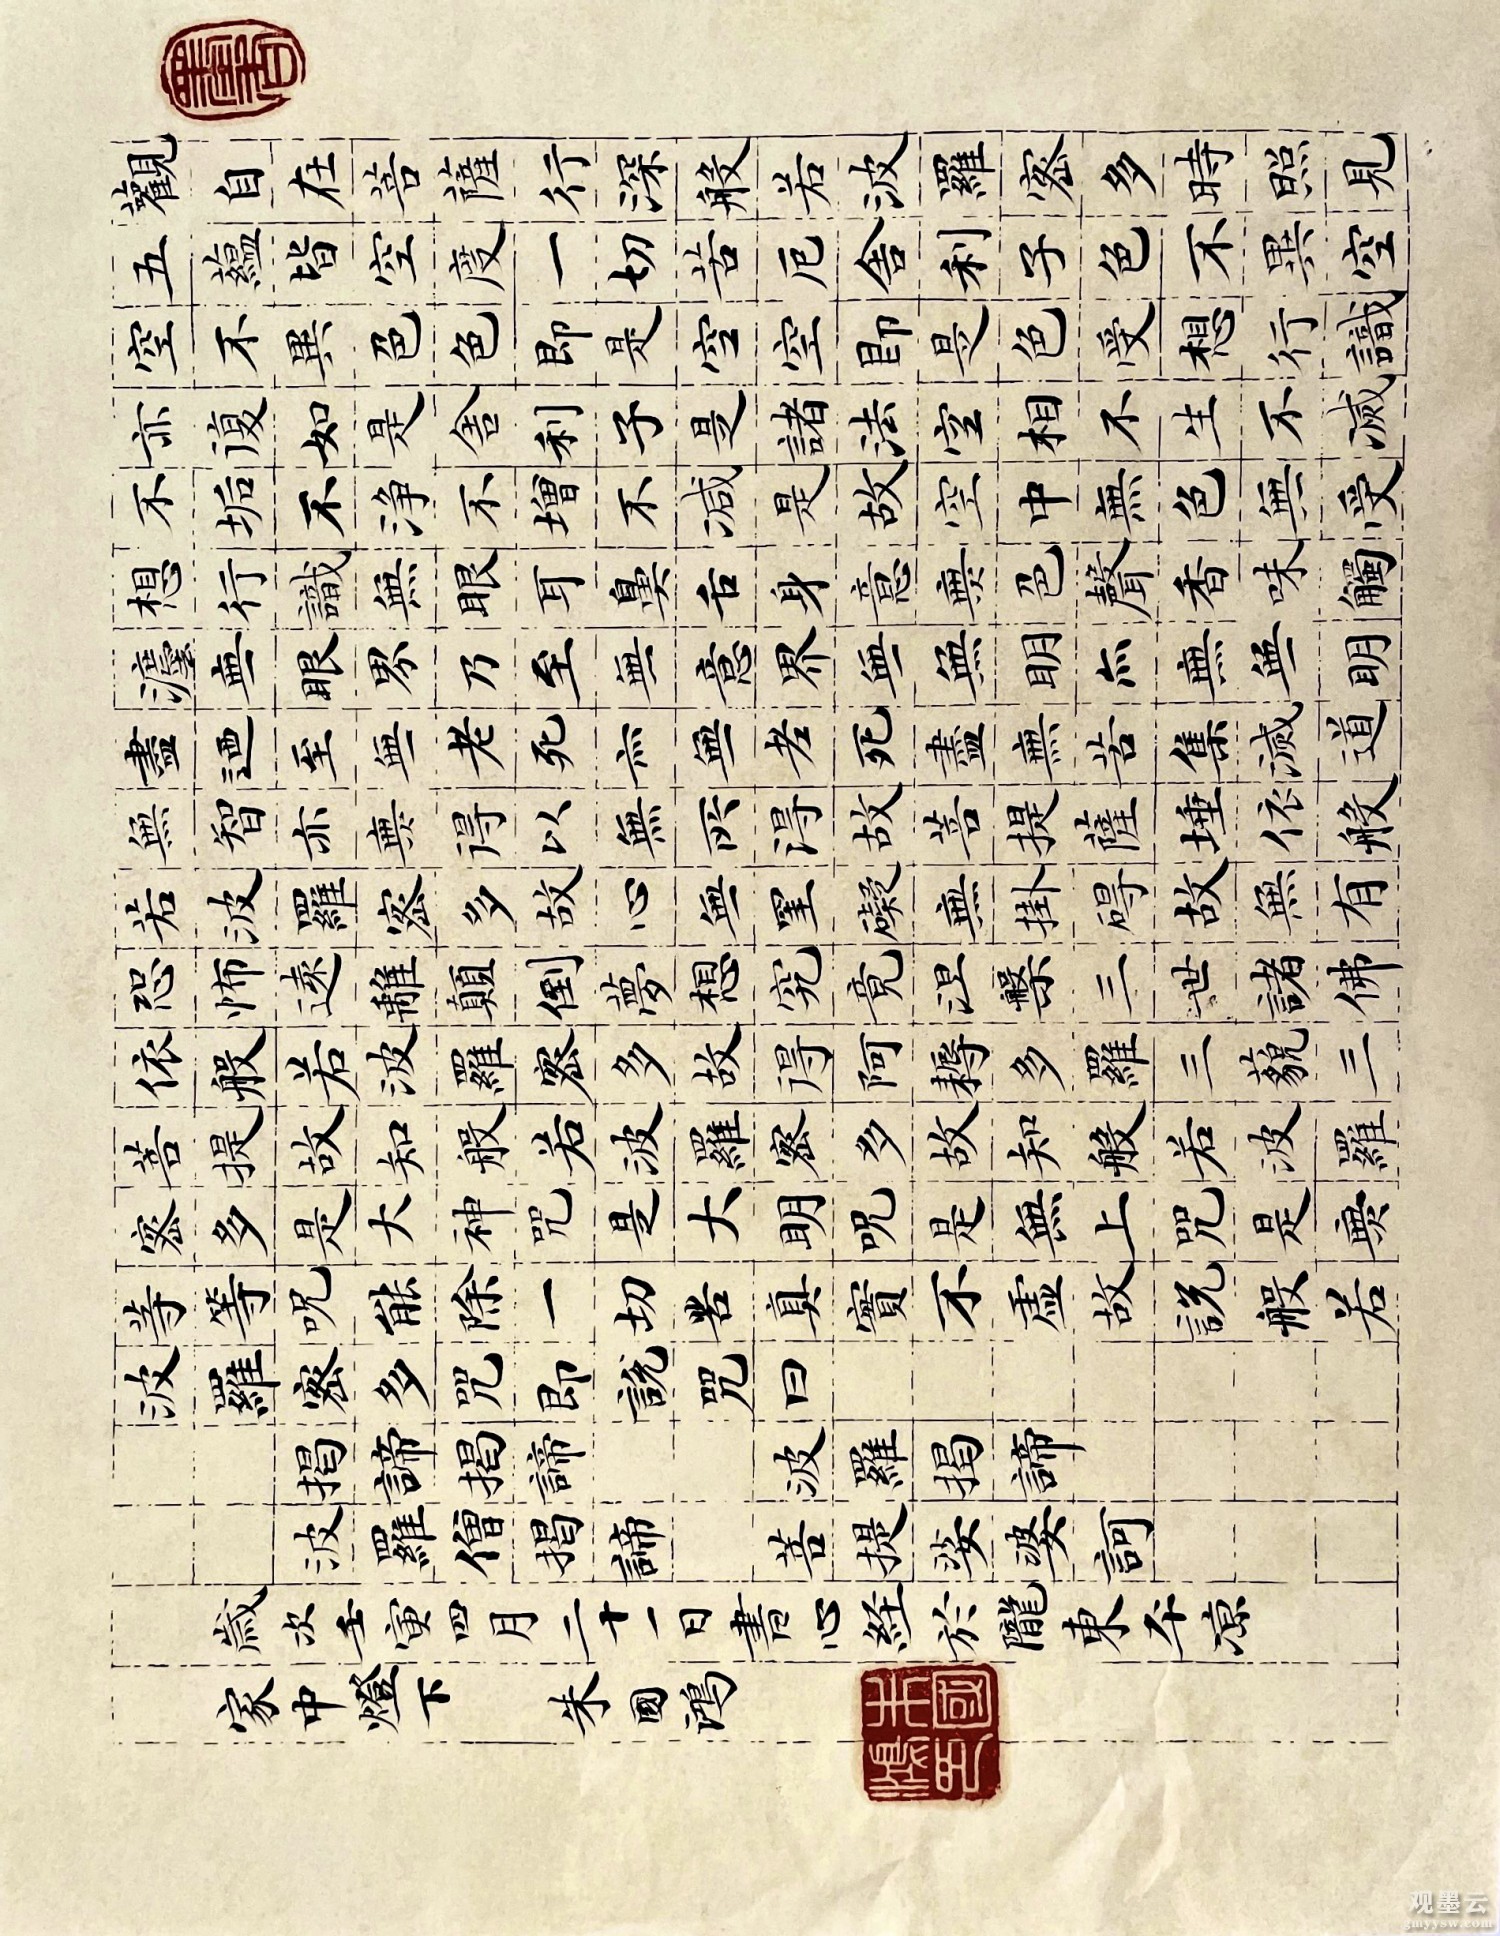 觀自在菩薩行深般若波羅密多時照見
五蘊皆空度一切苦厄舍利子色不異空
空不異色色即是空空即是色受想行識
亦復如是舍利子是諸法空相不生不滅
不垢不淨不增不減是故空中無色無受
想行識無眼耳鼻舌身意無色聲香味觸
灋無眼界乃至無意界無無明亦無無明
盡迺至無老死亦無老死盡無苦集滅道
無智亦無得以無所得故菩提薩埵依般
若波羅密多故心無罣礙無掛碍故無有
恐怖遠離顛倒夢想究竟涅槃三世諸佛
依般若波羅密多故得阿耨多羅三藐三
菩提故知般若波羅密多故知般若波羅
密多是大神咒是大明呪是無上咒是無
等等呪能除一切苦真實不虛故說般若
波羅密多咒即說咒曰
揭諦揭諦 波羅揭諦
波羅僧揭諦 菩提娑婆訶
歲次壬寅四月二十一日書心経於隴東平凉
家中燈下 朱國鴻
朱國鴻印
观墨云
gmyysw.com